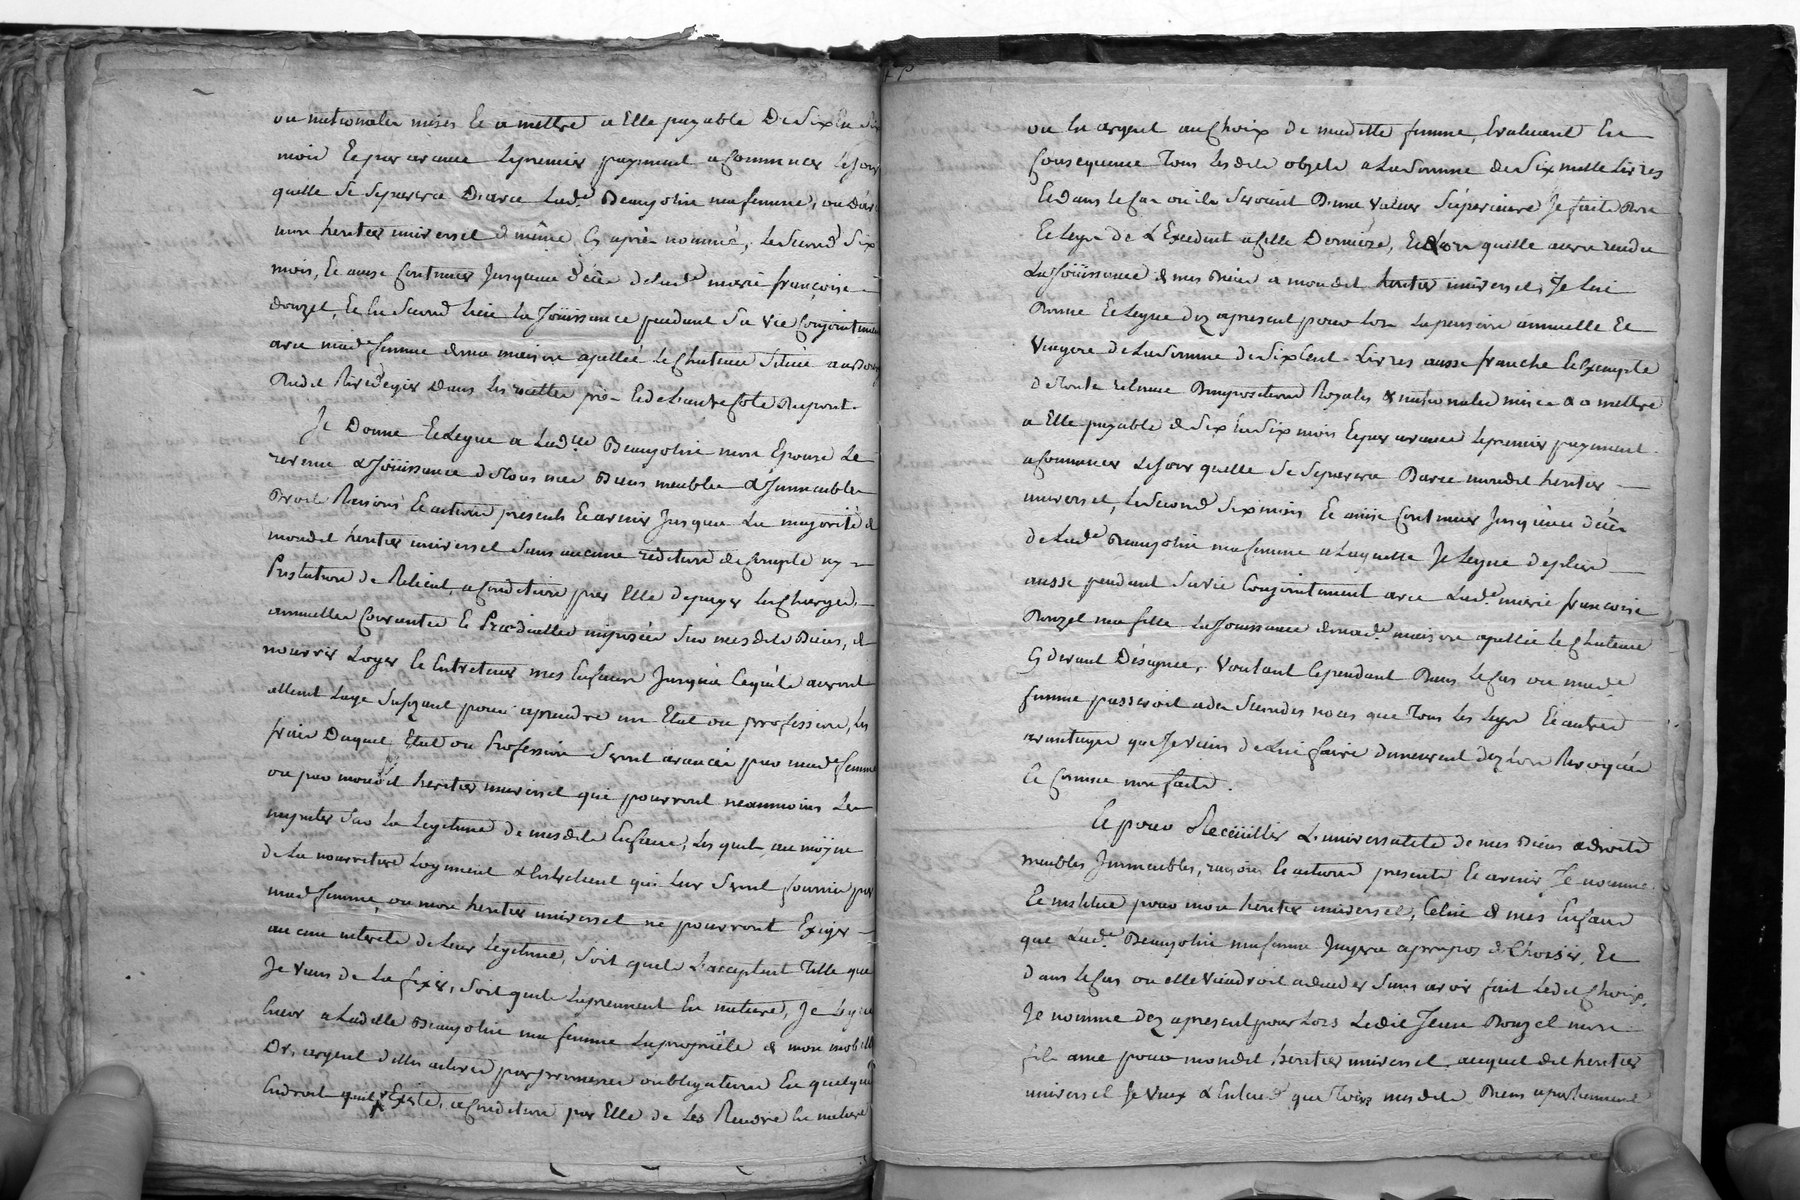 ou nationales mises Et a mettre a Elle payable De Six En Six
mois Et par avance Le premier payement a Commencer le Jour
quelle Se Separera D'avec Lad.e Beaujolin ma femme, ou D'avec
mon heritier universel d même Cy après nommé, Le Second Six
mois, Et ainsi Continuer Jusquau décès de Lad.e marie françoise
Douzel, Et En Second Lieu La Joüissance pendant Sa vie Conjointement
avec mad.e femme de ma maison apellée Le Chateau Située au
Dud.t Rivedegier Dans Les et de L'autre Coté Du pont.
Je Donne Et Legue a Lad.te Beaujolin mon Epouse Le
revenu & Joüissance de Tous mes Biens meubles & Immeubles
Droit Raisons Et actions presents Et avenir Jusqua La majorité de
mondit heritier universel Sans aucune redition de Compte ny
Prestation de Reliquat, a Condition par Elle de payer Les Charges
annuelles Courantes Et Prædialles imposées Sur mesdits Biens, &
nourrir Loger Et Entretenir mes Enfans Jusqu'a Ce qu'ils auront
atteint Lage Sufizant pour aprendre un Etat ou profession, Les
frais Duquel Etat ou Profession Seront avancés par mad.e femme
ou par mondit heritier universel qui pourront neanmoins Les
imputer Sur La Legitime de mesdits Enfans, Les quels au moÿen
de La nourriture Logement & Entretient qui Leur Seront fournis par
mad.e femme, ou mon heritier universel ne pourront Exiger
aucuns interets de Leur Legitime, Soit quils L'acceptent Telle que
Je viens de La fixer, Soit quils La prennent En nature, Je Legue
Encor a Ladite Beaujolin ma femme La propriété de mon mobilier
Or, argent dettes actives par promesses ou obligations En quelque
Endroit qu'il Existe, a Condition par Elle de Les Rendre En nature
ou En argent au Choix de madite femme, Evaluant En
Consequence Tous Lesdits objets a La Somme de Six mille Livres
Et dans le Cas où ils Seroient D'une valeur Superieure Je fais Don
Et Legs de L'Excedent a Cette Derniere, Et Lors quelle aura rendu
La Joüissance de mes Biens a mondit heritier universel, Je Lui
Donne Et Legue dez apresent pour Lors La pension annuelle Et
Viagere de La Somme de Six Cent Livres aussi franche Et Exempte
de Toute retenue D'impositions Royales & nationales mises & a mettre
a Elle payable de Six En Six mois Et par avance Le premier payement
a Commencer Le Jour quelle Se Separera D'avec mondit heritier
universel, Le Second Six mois Et ainsi Continuer Jusqu'au décès
de Lad.e Beaujolin ma femme a Laquelle Je Legue de plus
aussi pendant Sa vie Conjointement avec Lad.e marie françoise
Douzel ma fille La Jouissance de mad.e maison apellée Le Chateau
Cy devant Désignée, Voulant Cependant Dans Le Cas ou mad.e
femme passeroit a des Secondes noces que Tous Les Legs Et autres
avantages que Je viens de Lui faire demeurent dez lors Revoqués
Et Comme non faits.
Et pour Recuëillir L'universalité de mes Biens & droits
meubles Immeubles, raisons Et actions presents Et avenir Je nomme
Et institue pour mon heritier universel, Celui de mes Enfans
que Lad.e Beaujolin ma femme Jugera apropos de Choisir, Et
Dans Le Cas ou elle viendroit a deceder Sans avoir fait Ledit Choix,
Je nomme dez apresent pour Lors Ledit Jean Douzel mon
fils ainé pour mondit heritier universel, auquel dit heritier
universel Je Veux & Entend que Tous mesdits Biens apartiennent